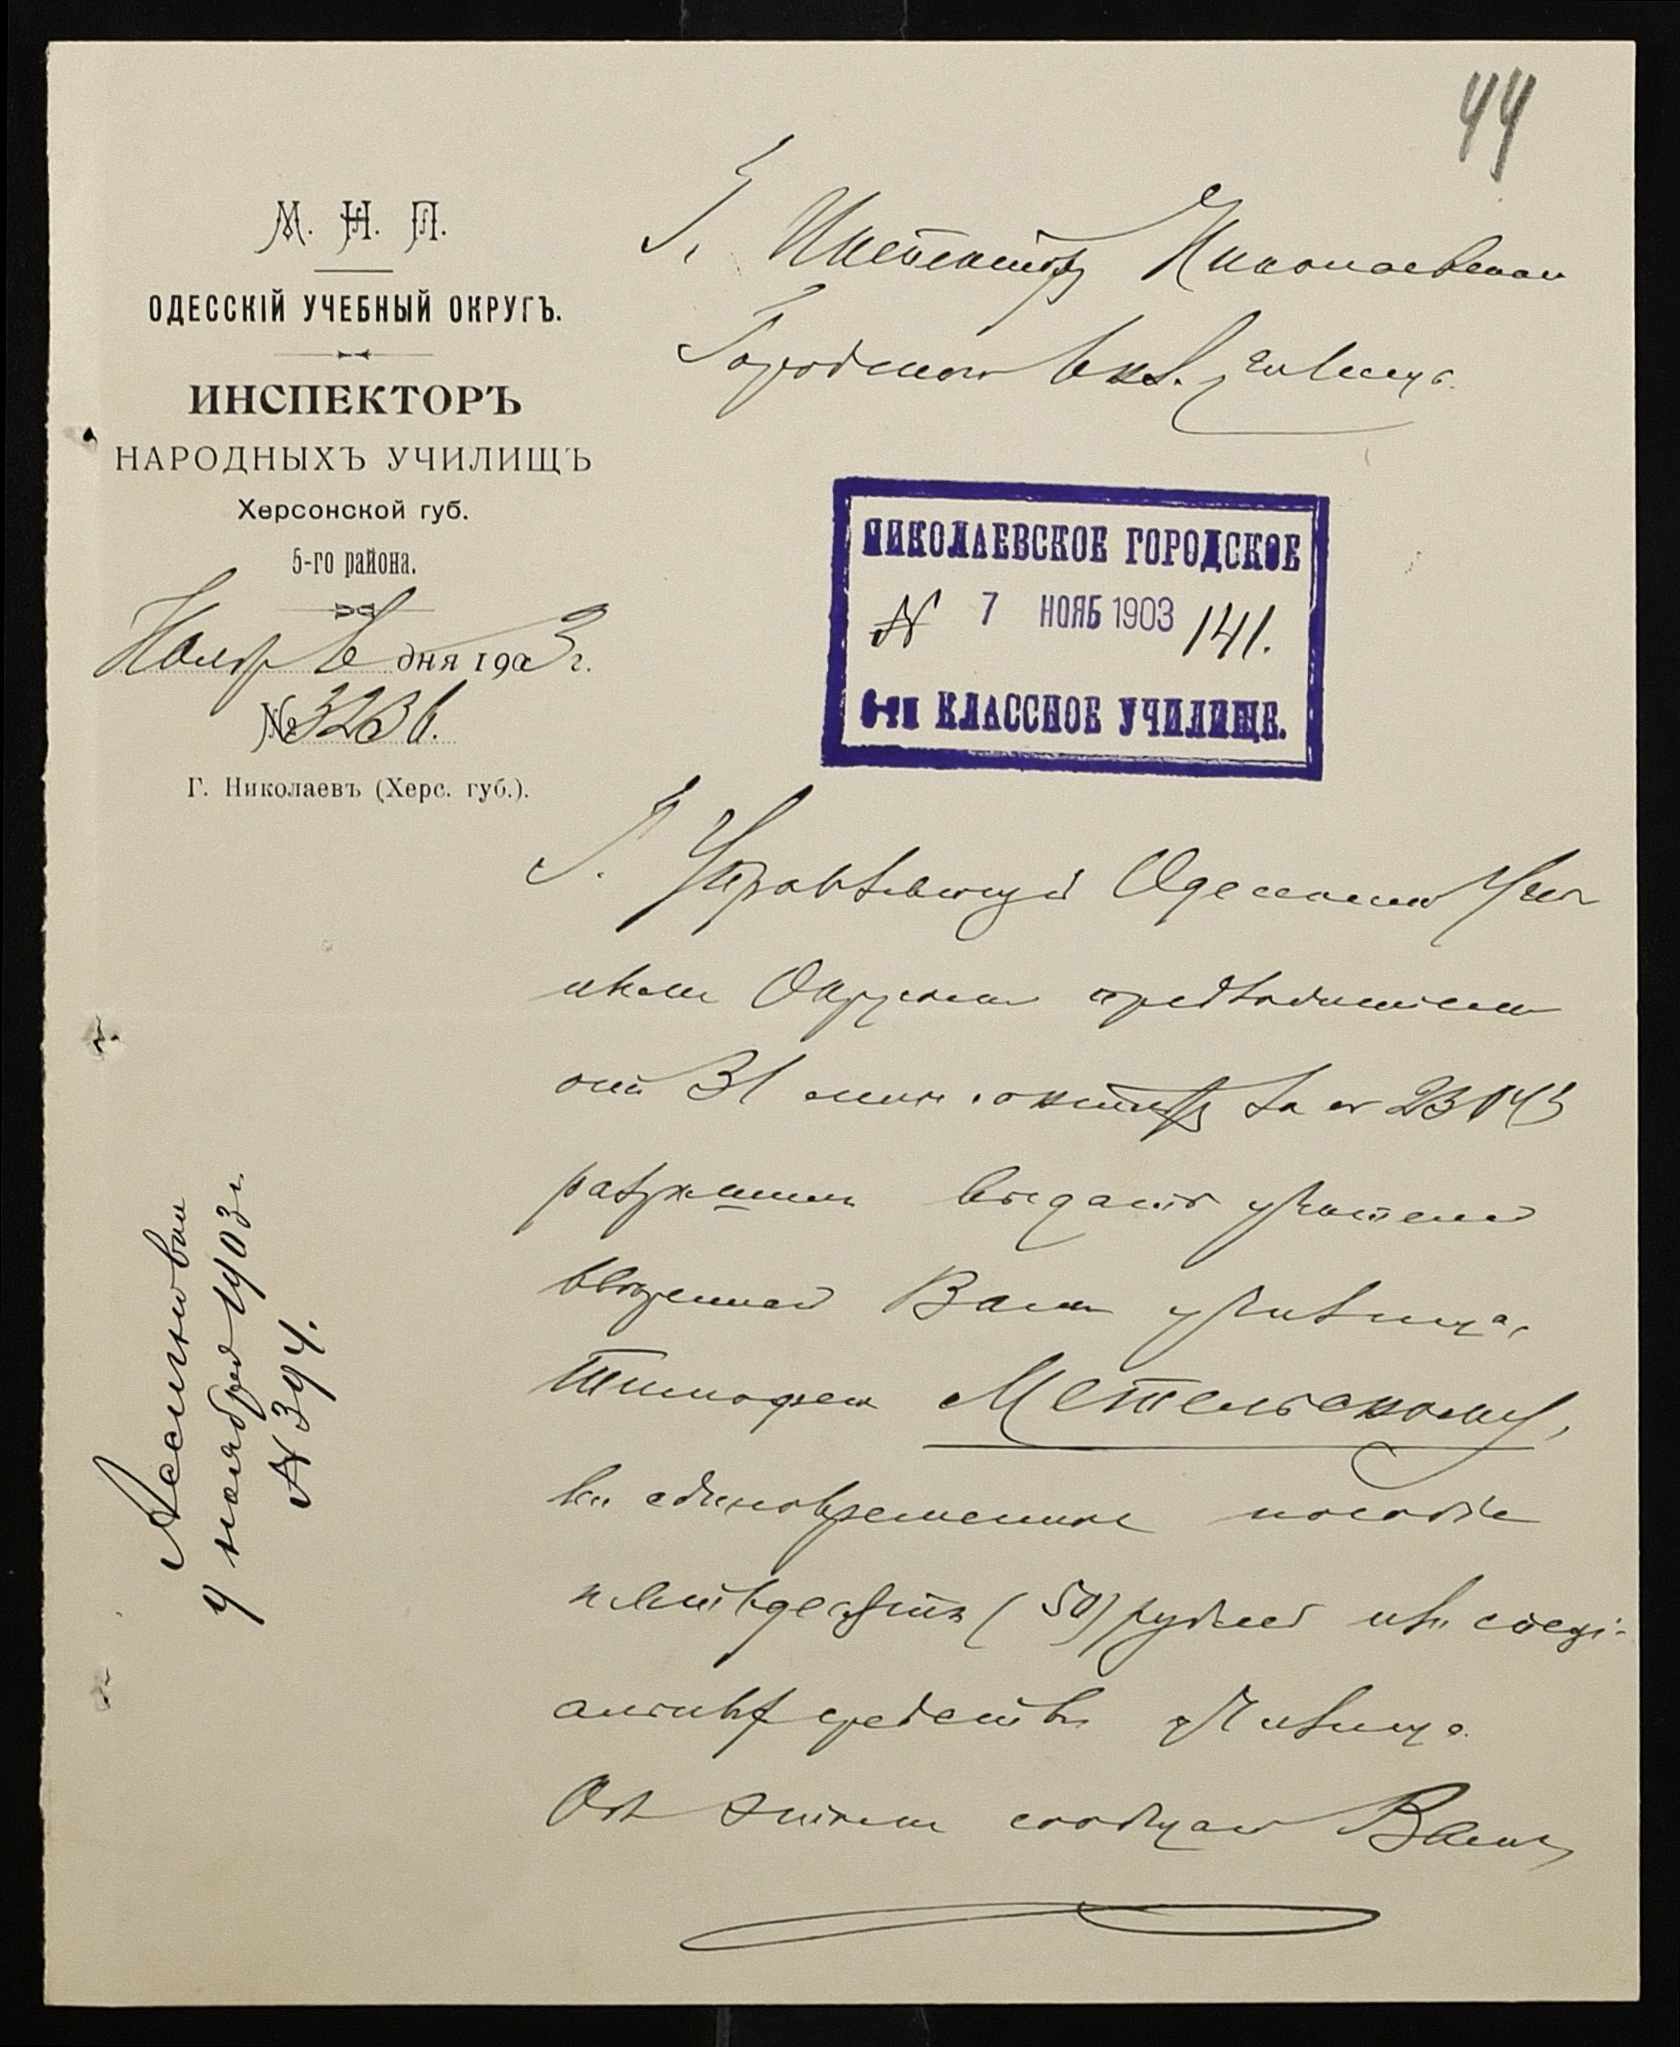 44
М. Н. П.
ОДЕССКІЙ УЧЕБНЫЙ ОКРУГЪ.
ИНСПЕКТОРЪ
НАРОДНЫХЪ УЧИЛИЩЪ
Херсонской губ.
5-го района.
Ноябр 6 дня 1903 г.
№ 3236.
Г. Николаевъ (Херс. губ.).
Г. Инспектору Николаевскаго
Городского 6 кл. училища.
НИКОЛАЕВСКОЕ ГОРОДСКОЕ
№ 7 НОЯБ 1903 141.
6-ти КЛАССНОЕ УЧИЛИЩЕ.
Г. Управляющій Одесскимъ Учеб
нымъ Округомъ предложеніемъ
отъ 31 мин. октября за №
разрѣшилъ выдать учителю
ввѣреннаго Вамъ училища,
Тимофею Метельскому,
въ единовременное пособіе
пятьдесятъ (50) рублей изъ спеці-
альныхъ средствъ училища.
Объ этомъ сообщаю Вамъ
Ассигновки
ноября 1903 г.
№ 394.